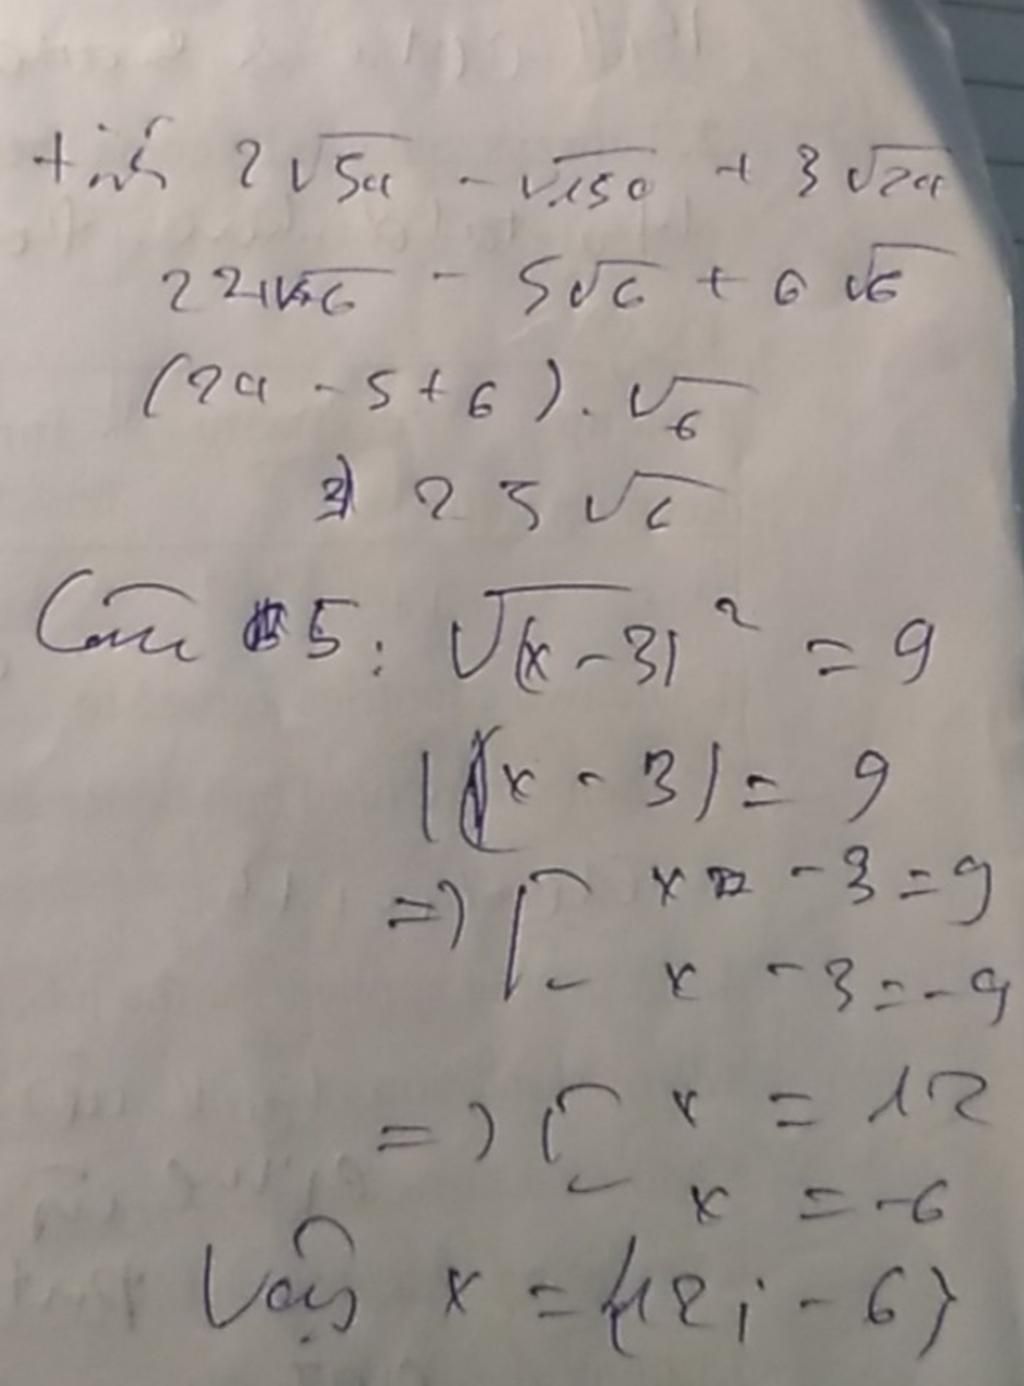 tính 2√54 - √150 + 3√24
- 5√6 + 6√6
(24 - 5 + 6) . √6
25 √6
Câu 5: √(x - 3)² = 9
|(x - 3| = 9
=> [ x - 3 = 9
x - 3 = -9
=> [ x = 12
x = -6
Vậy x = {12; -6}